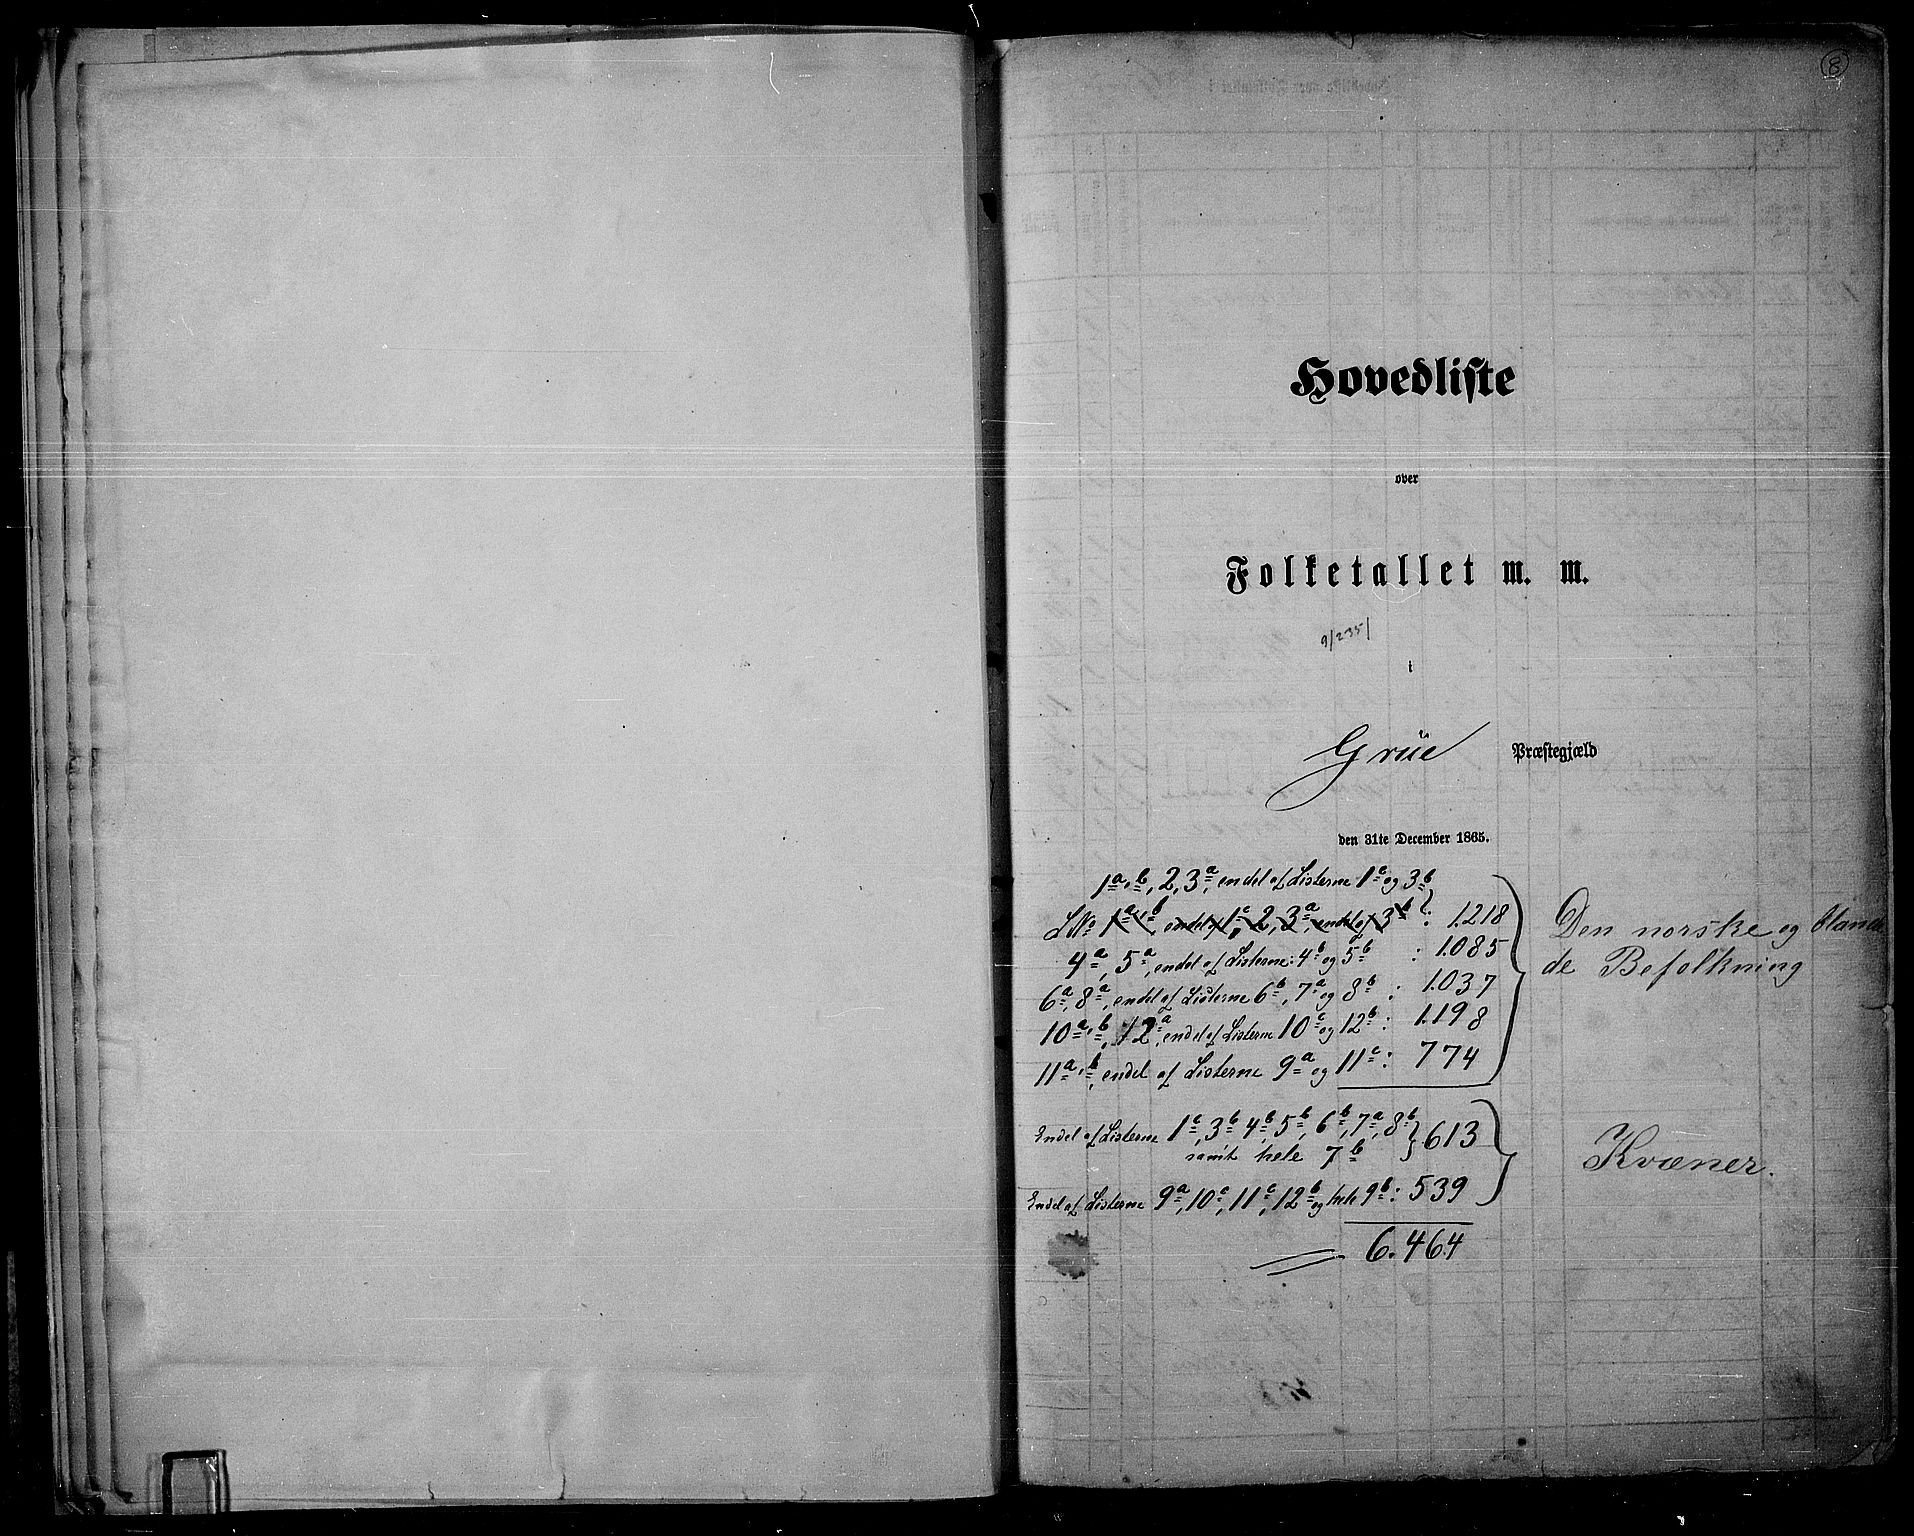 8
Hovedliste
over
Folketallet m. m.
9/235/
i
Grüe Præstegjæld
den 31te December 1865.
1a, b, 2, 3a, endel af Listerne 1c og 3b
LNo 1a, b, endel af 1c, 2, 3a, endel af 3b : 1.218
4a, 5a, endel af Listerne: 4b og 5b : 1.085
6a, 8a, endel af Listerne 6b, 7a og 8b : 1.037
10a, b, 12a, endel af Listerne 10c og 12b : 1.198
11a, b, endel af Listerne 9a og 11c : 774
Den norske og blande
de Befolkning
Endel af Listerne 1c, 3b, 4b, 5b, 6b, 7a, 8b } 613
samt hele 7b
Kvæner.
Endel af Listerne 9a, 10c, 11c, 12b og hele 9b : 539
6.464